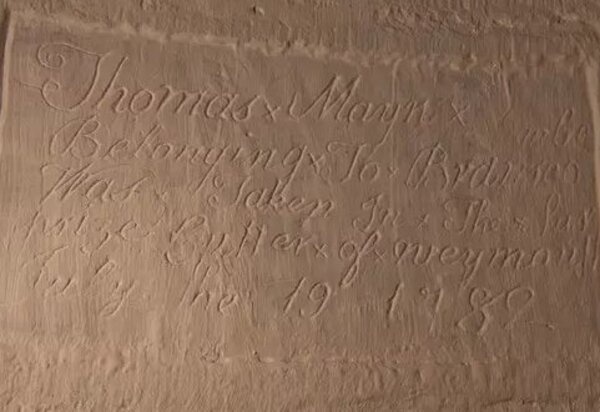 Thomas x Mayn x
Belonging x To x
Was x Taken In x The x
prize Cutter x of x weymouth
July the 19 1782